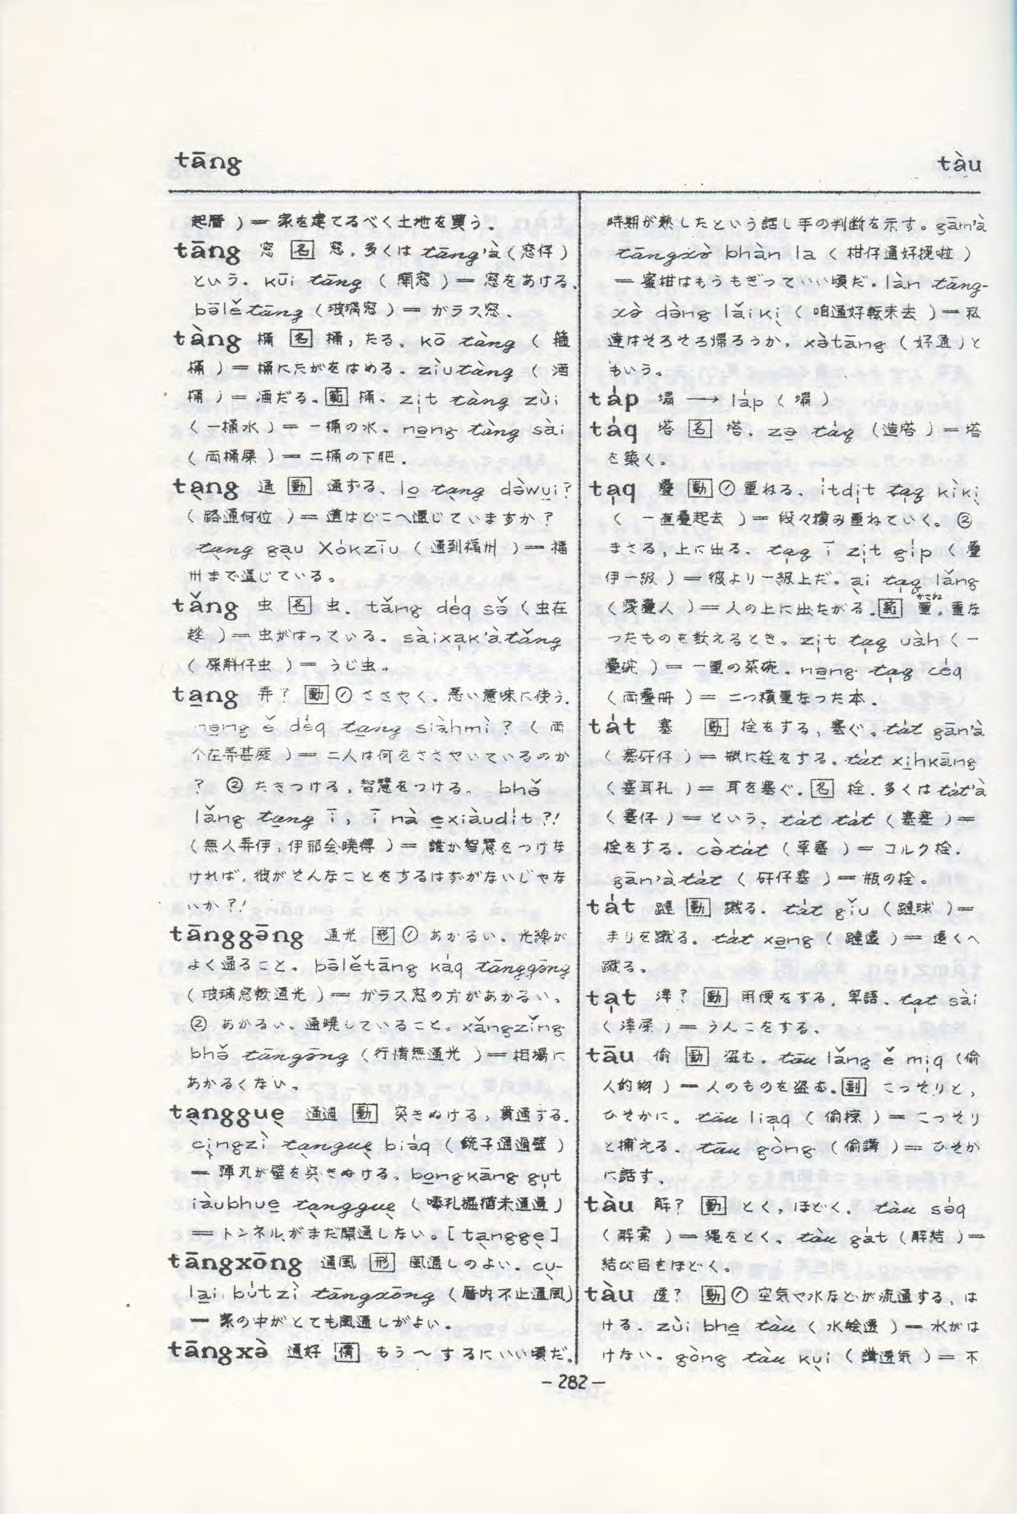 tāng
tàu
起厝 ) = 家を建てるべく土地を買う。
tāng 窓 [名] 窓。多くは tāng'à (窓仔)
という。kūi tāng ( 開窓 ) = 窓をあける。
bōlětāng (玻璃窓 ) = ガラス窓。
tàng 桶 [名] 桶，たる。kō tàng ( 箍
桶 ) = 桶にたがをはめる。ziutàng ( 酒
桶 ) = 酒だる。[範] 桶。zi̍t tàng zùi
( 一桶水 ) = 一桶の水。nəng tàng sài
( 両桶屎 ) = 二桶の下肥。
tạng 通 [動] 通ずる。lo tạng dəwui?
( 路通何位 ) = 道はどこへ通じていますか？
tạng gạu Xókziu ( 通到福州 ) = 福
州まで通じている。
tǎng 虫 [名] 虫。tǎng déq sə ( 虫在
趖 ) = 虫がはっている。sàixạk'àtǎng
( 屎斛仔虫 ) = うじ虫。
tang 弄？ [動] ① ささやく。悪い意味に使う。
nəng ě déq tang siàhmì? ( 両
个在弄甚麼 ) = 二人は何をささやいているのか
？ ② たきつける，智慧をつける。bhə
lǎng tang ī, ī nà exiàudit?!
( 無人弄伊，伊那会暁得 ) = 誰か智慧をつけな
ければ，彼がそんなことをするはずがないじゃな
いか？！
tānggəng 通光 [形] ① あかるい。光線が
よく通ること。bōlětāng kạq tānggəng
( 玻璃窓較通光 ) = ガラス窓の方があかるい。
② あかるい。通暁していること。xǎngzǐng
bhə tānggəng ( 行情無通光 ) = 相場に
あかるくない。
tạnggue 通過 [動] 突きぬける，貫通する。
cịngzì tạnggue biáq ( 銃子通過壁 )
= 弾丸が壁を突きぬける。
iàubhue tạnggue
= トンネルがまだ開通しない。[tạngge]
tāngxōng 通風 [形] 風通しのよい。cu-
lai bu̍tzì tāngxōng ( 厝内不止通風 )
= 家の中がとても風通しがよい。
tāngxə̀ 通好 [情] もう～するにいい頃だ。
時期が熟したという話し手の判断を示す。gām'à
tāngxə̀ bhàn la ( 柑仔通好挽啦 )
= 蜜柑はもうもぎっていい頃だ。làn tāng-
xə̀ də̀ng lǎiki ( 咱通好転来去 ) = 私
達はそろそろ帰ろうか。xə̀tāng ( 好通 ) と
もいう。
táp 塌 → láp ( 塌 )
táq 塔 [名] 塔。zə táq (造塔 ) = 塔
を築く。
tạq 疊 [動] ① 重ねる。ítdít tạq kìki
( 一直疊起去 ) = 段々積み重ねていく。②
まさる，上に出る。tạq ī zi̍t gíp ( 疊
伊一級 ) = 彼より一級上だ。ại tạq lǎng
( 愛疊人 ) = 人の上に出たがる。[範] 重。重な
かさね
ったものを数えるとき。zi̍t tạq uàh ( 一
疊碗 ) = 一重の茶碗。nəng tạq céq
( 両疊冊 ) = 二つ積重なった本。
tát 塞 [動] 栓をする，塞ぐ。tát gān'à
( 塞矸仔 ) = 瓶に栓をする。tát xihkāng
( 塞耳孔 ) = 耳を塞ぐ。[名] 栓。多くは tát'à
( 塞仔 ) = という。tát tát ( 塞塞 ) =
栓をする。cə̀tát ( 草塞 ) = コルク栓。
gān'àtát ( 矸仔塞 ) = 瓶の栓。
tát [動] 蹴る。tát gǐu
まりを蹴る。tát xəng = 遠くへ
蹴る。
tạt [動] 用便をする。卑語。tạt sài
= うんこをする。
tāu 偷 [動] 盗む。tāu lǎng ě mịq (偷
人的物 ) = 人のものを盗む。[副] こっそりと，
ひそかに。tāu liạq ( 偷掠 ) = こっそり
と捕える。tāu gòng ( 偷講 ) = ひそか
に話す。
tàu 解？ [動] とく，ほどく。tàu səq
( 解索 ) = 縄をとく。tàu gát ( 解結 ) =
結び目をほどく。
tàu 透？ [動] ① 空気や水などが流通する，は
ける。zùi bhe tàu ( 水絵透 ) = 水がは
けない。gòng tàu kụi ( 講透気 ) = 不
— 282 —